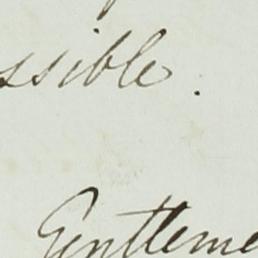 ssible.
Gentleme